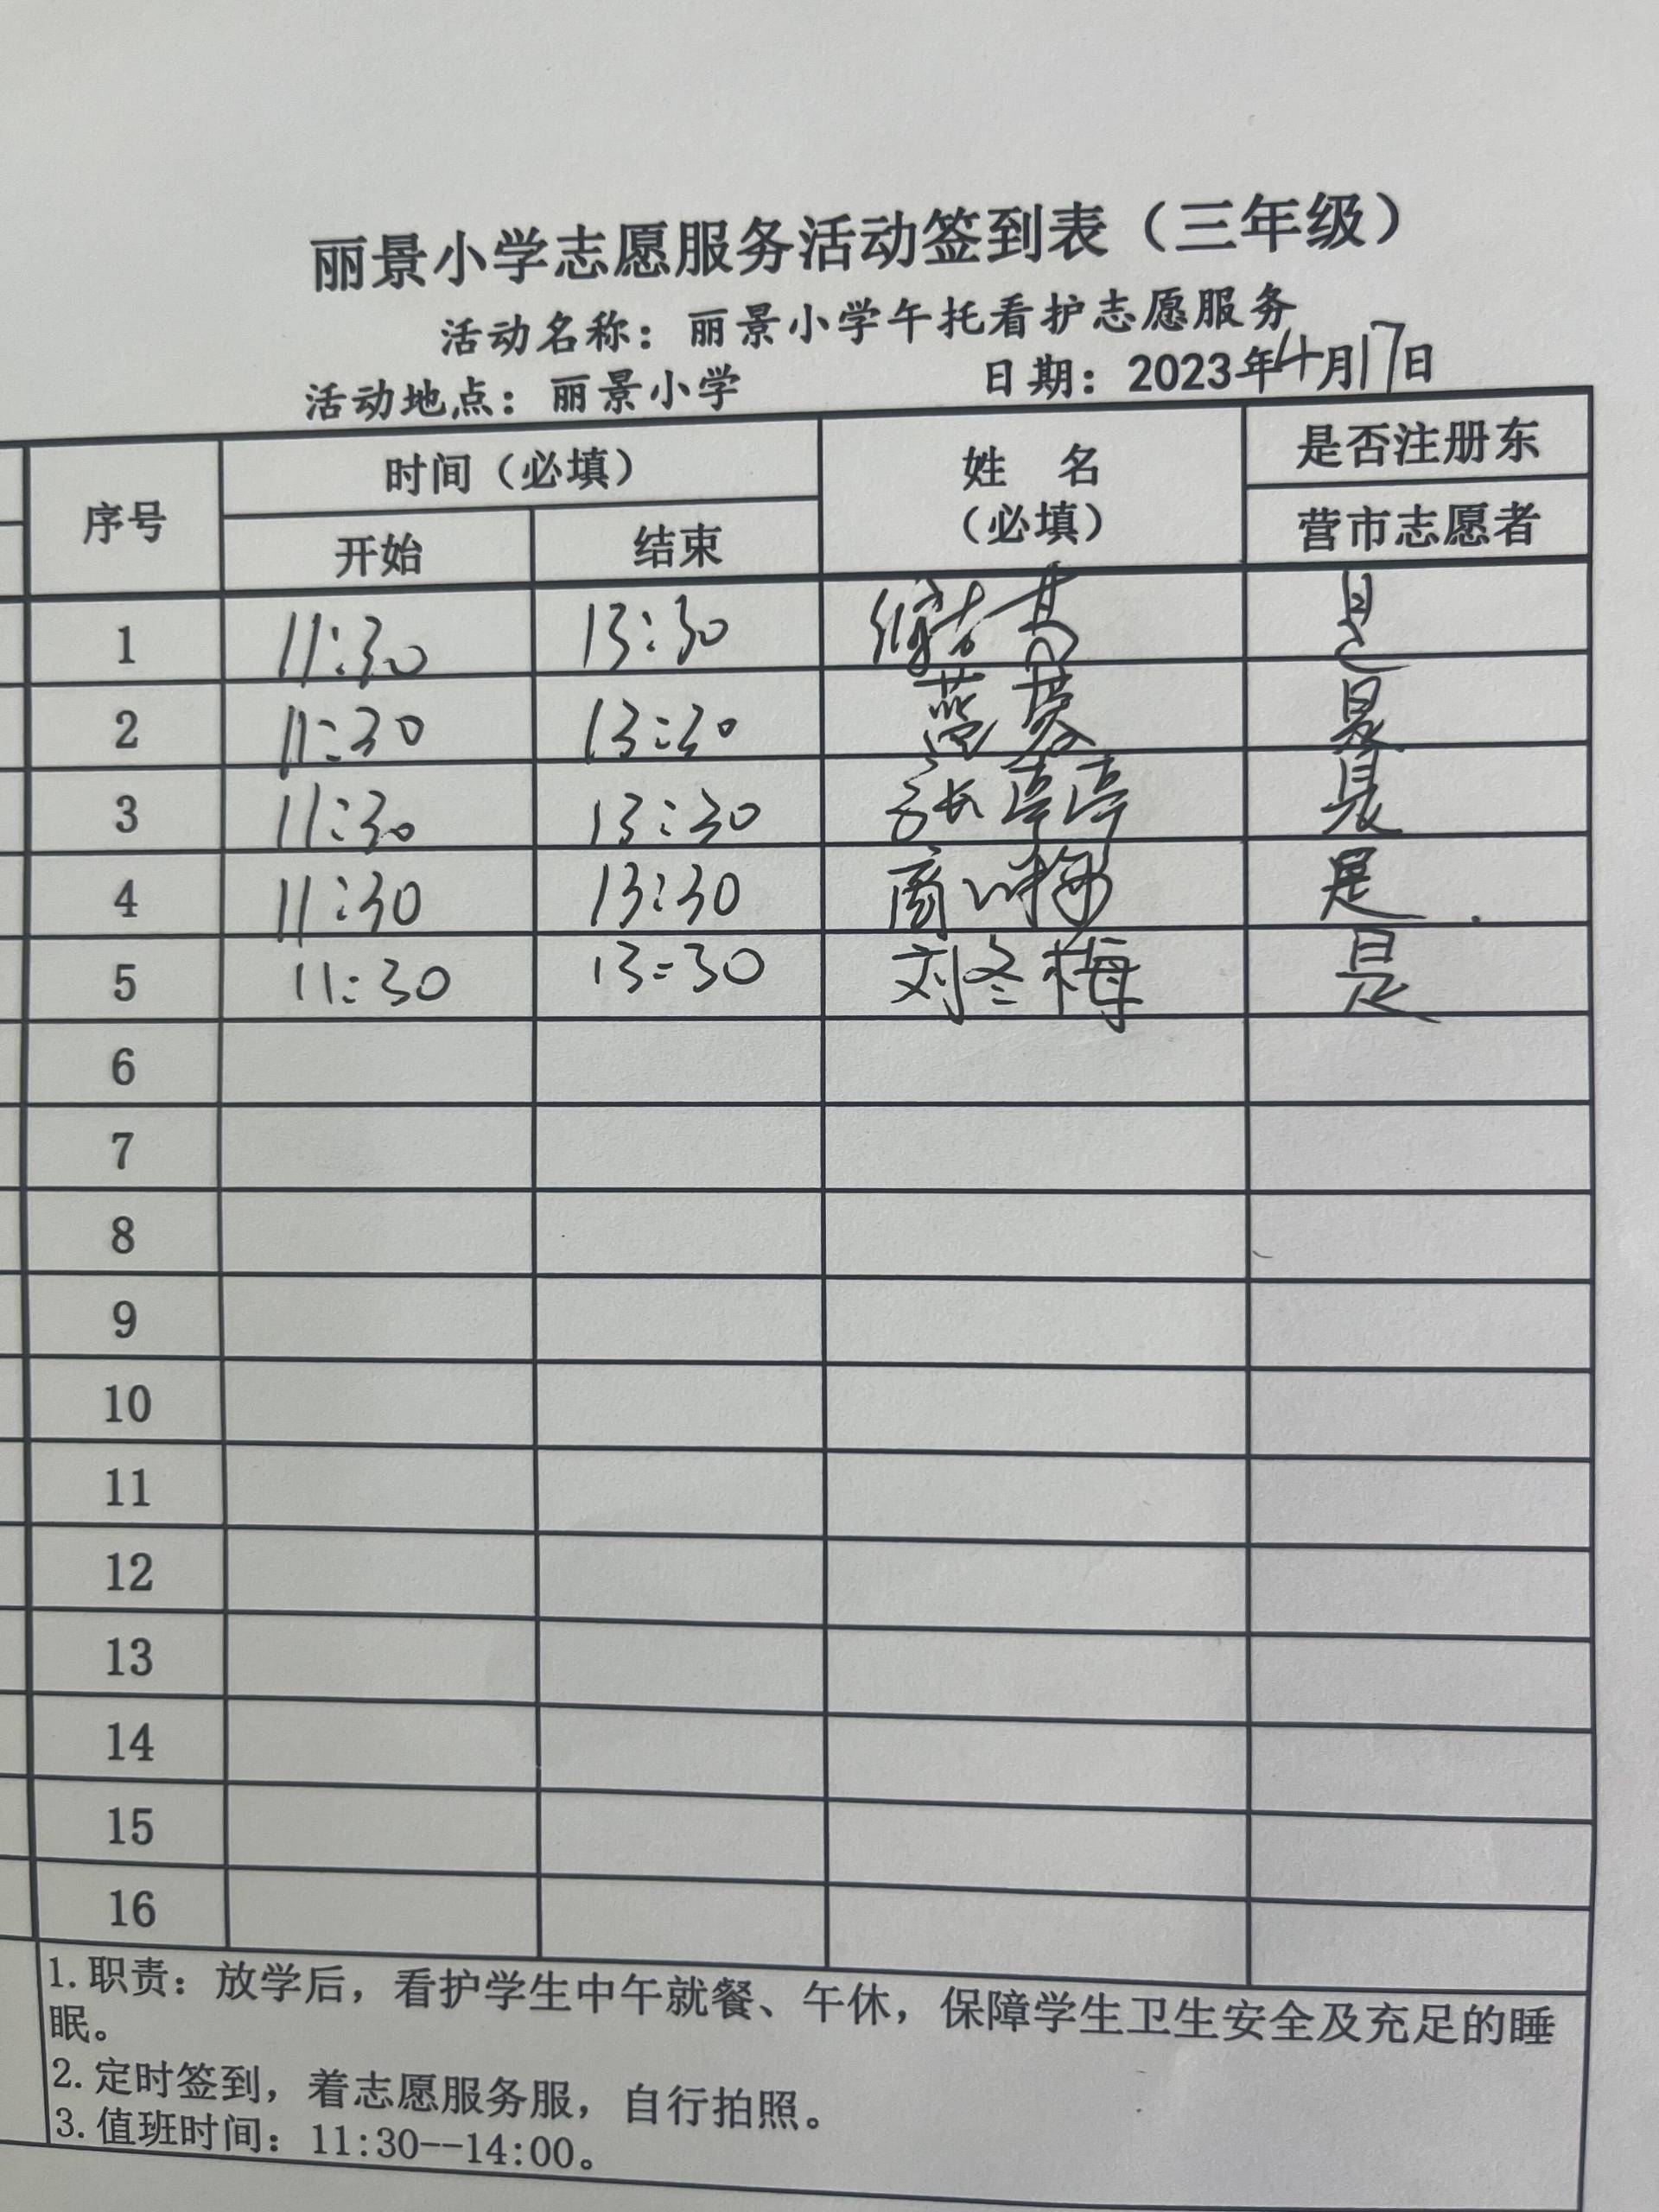 丽景小学志愿服务活动签到表（三年级）
活动名称：丽景小学午托看护志愿服务
活动地点：丽景小学 日期：2023年4月17日
序号 时间（必填） 姓 名 （必填） 是否注册东
营市志愿者
开始 结束
1 11:30 13:30 是
2 11:30 13:30 是
3 11:30 13:30 张亭亭 是
4 11:30 13:30 是
5 11:30 13:30 刘冬梅 是
6
7
8
9
10
11
12
13
14
15
16
1.职责：放学后，看护学生中午就餐、午休，保障学生卫生安全及充足的睡
眠。
2.定时签到，着志愿服务服，自行拍照。
3.值班时间：11:30--14:00。